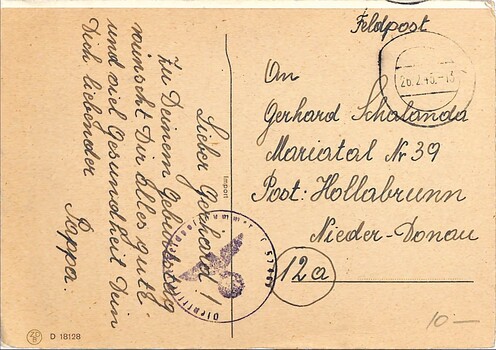 Feldpost
26.2.45.-13
An
Gerhard Schalanda
Mariatal Nr 39
Post: Hollabrunn
Nieder-Donau
12a
Lieber Gerhard!
Zu Deinem Geburtstag
wünscht Dir alles gute
und viel Gesundheit Dein
Dich liebender
Pappa.
Import
D 18128
10 —